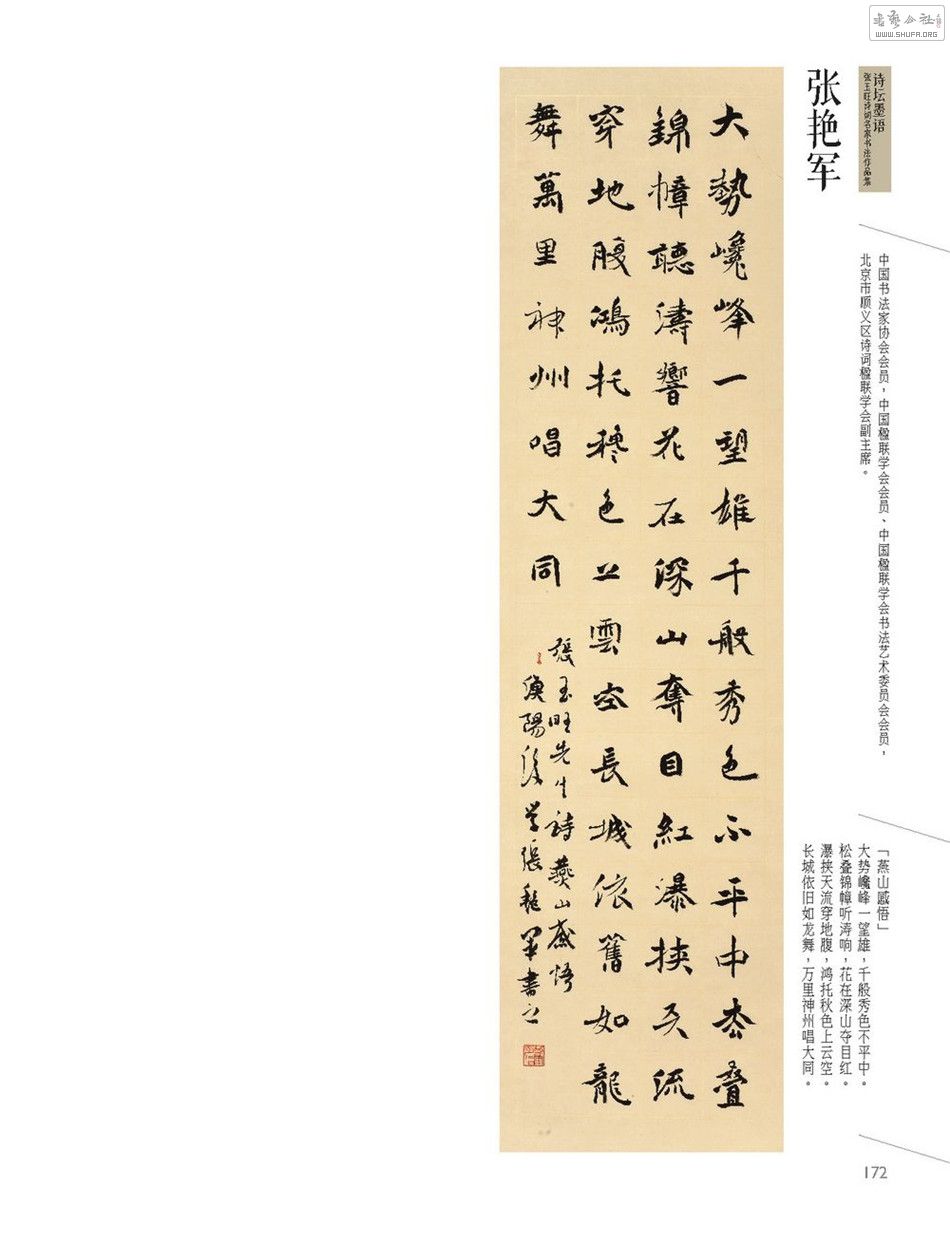 WWW.SHUFA.ORG
诗坛墨语
张玉旺诗词名家书法作品集
张艳军
中国书法家协会会员，中国楹联学会会员、中国楹联学会书法艺术委员会会员，
北京市顺义区诗词楹联学会副主席。
「燕山感悟」
大势巉峰一望雄，千般秀色不平中。
松叠锦幛听涛响，花在深山夺目红。
瀑挟天流穿地腹，鸿托秋色上云空。
长城依旧如龙舞，万里神州唱大同。
大勢巉峰一望雄千般秀色不平中枩叠
錦幛聽濤響花在深山奪目紅瀑挟天流
穿地腹鴻托穐色上雲空長城依舊如龍
舞萬里神州唱大同
張玉旺先生詩燕山感悟
後學張艳軍書之
172